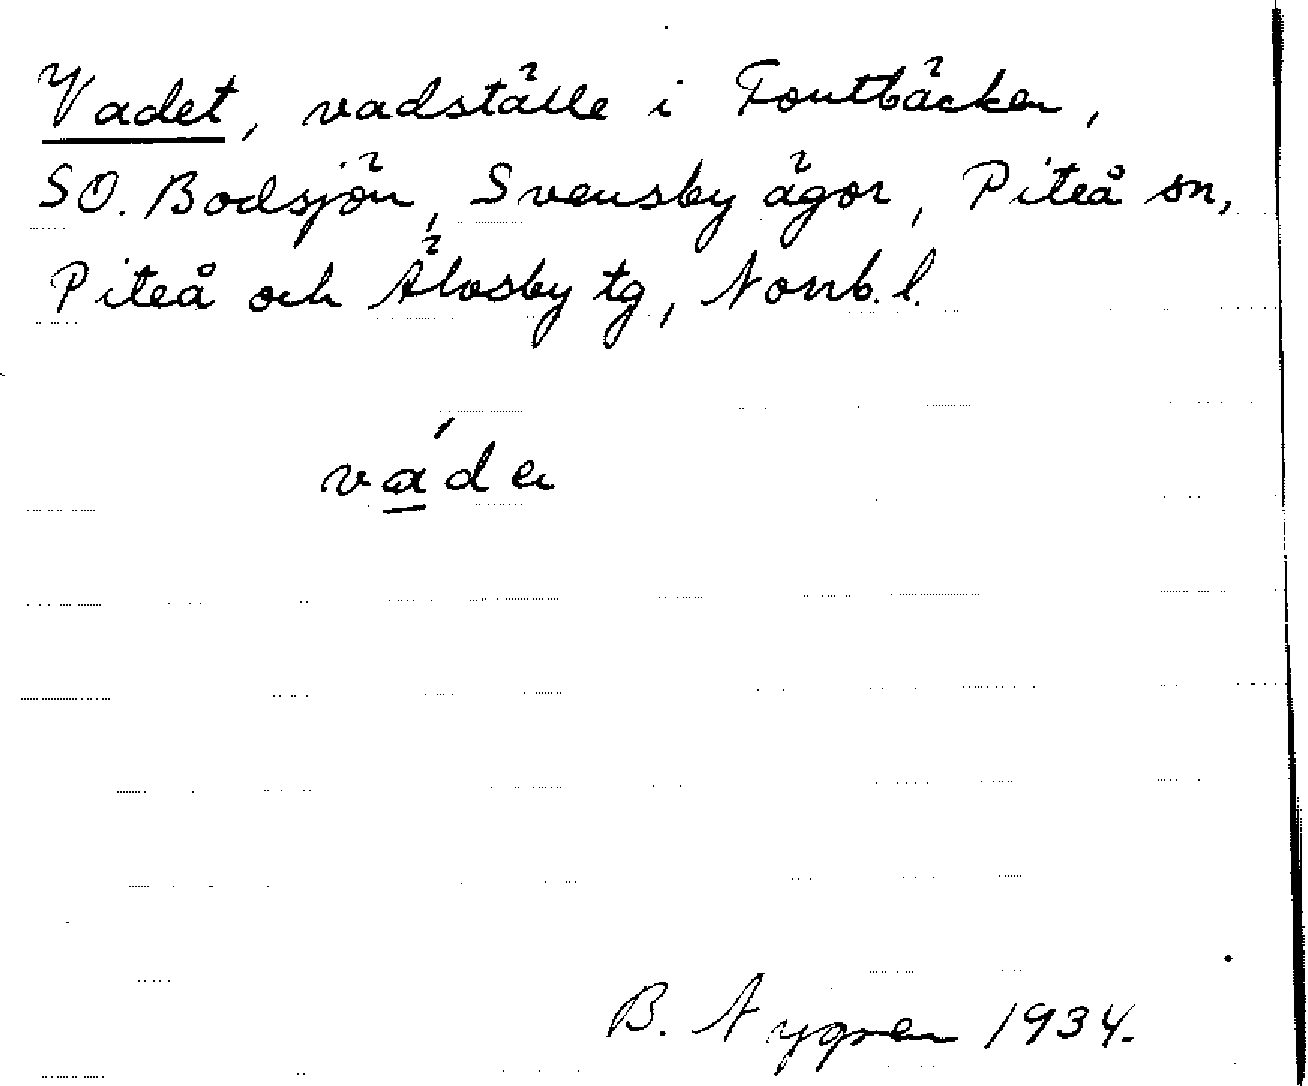 Vadet, vadställe i Tontbäcken,
SO. Bodsjön, Svensby ägor, Piteå sn,
Piteå och Älvsby tg, Norrb. l.
vá̱den
B. Nygren 1934.